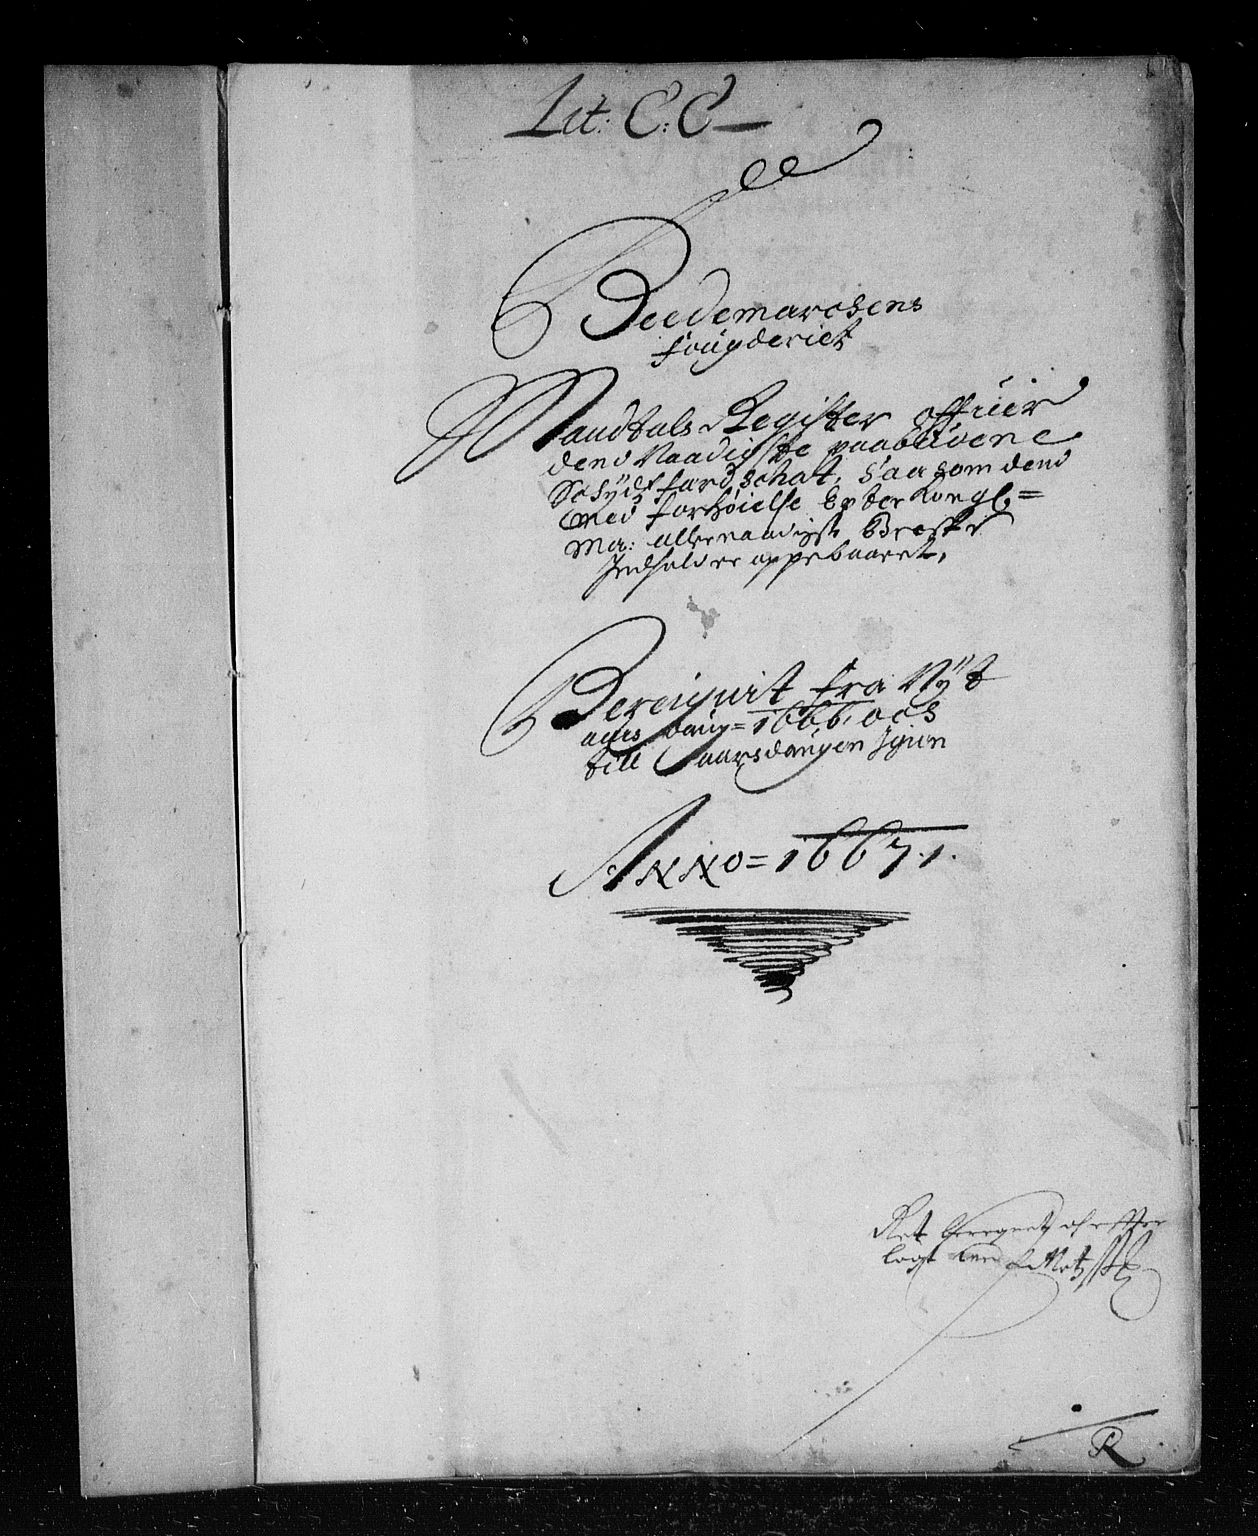 Lit: C: C
Heedemarchens
fougderiet
Mandtals Register offuer
dend Naadigste paabudene
fardschat, Saasom dend
med forhøielse Epter Kongl=
Ma: allernaadigste
Indhold er oppebaaret,
Beregnit fra Nyt
aars daug= 1666, och
till aarsdaugen Igien
Anno= 1667.
Ret beregnet
R